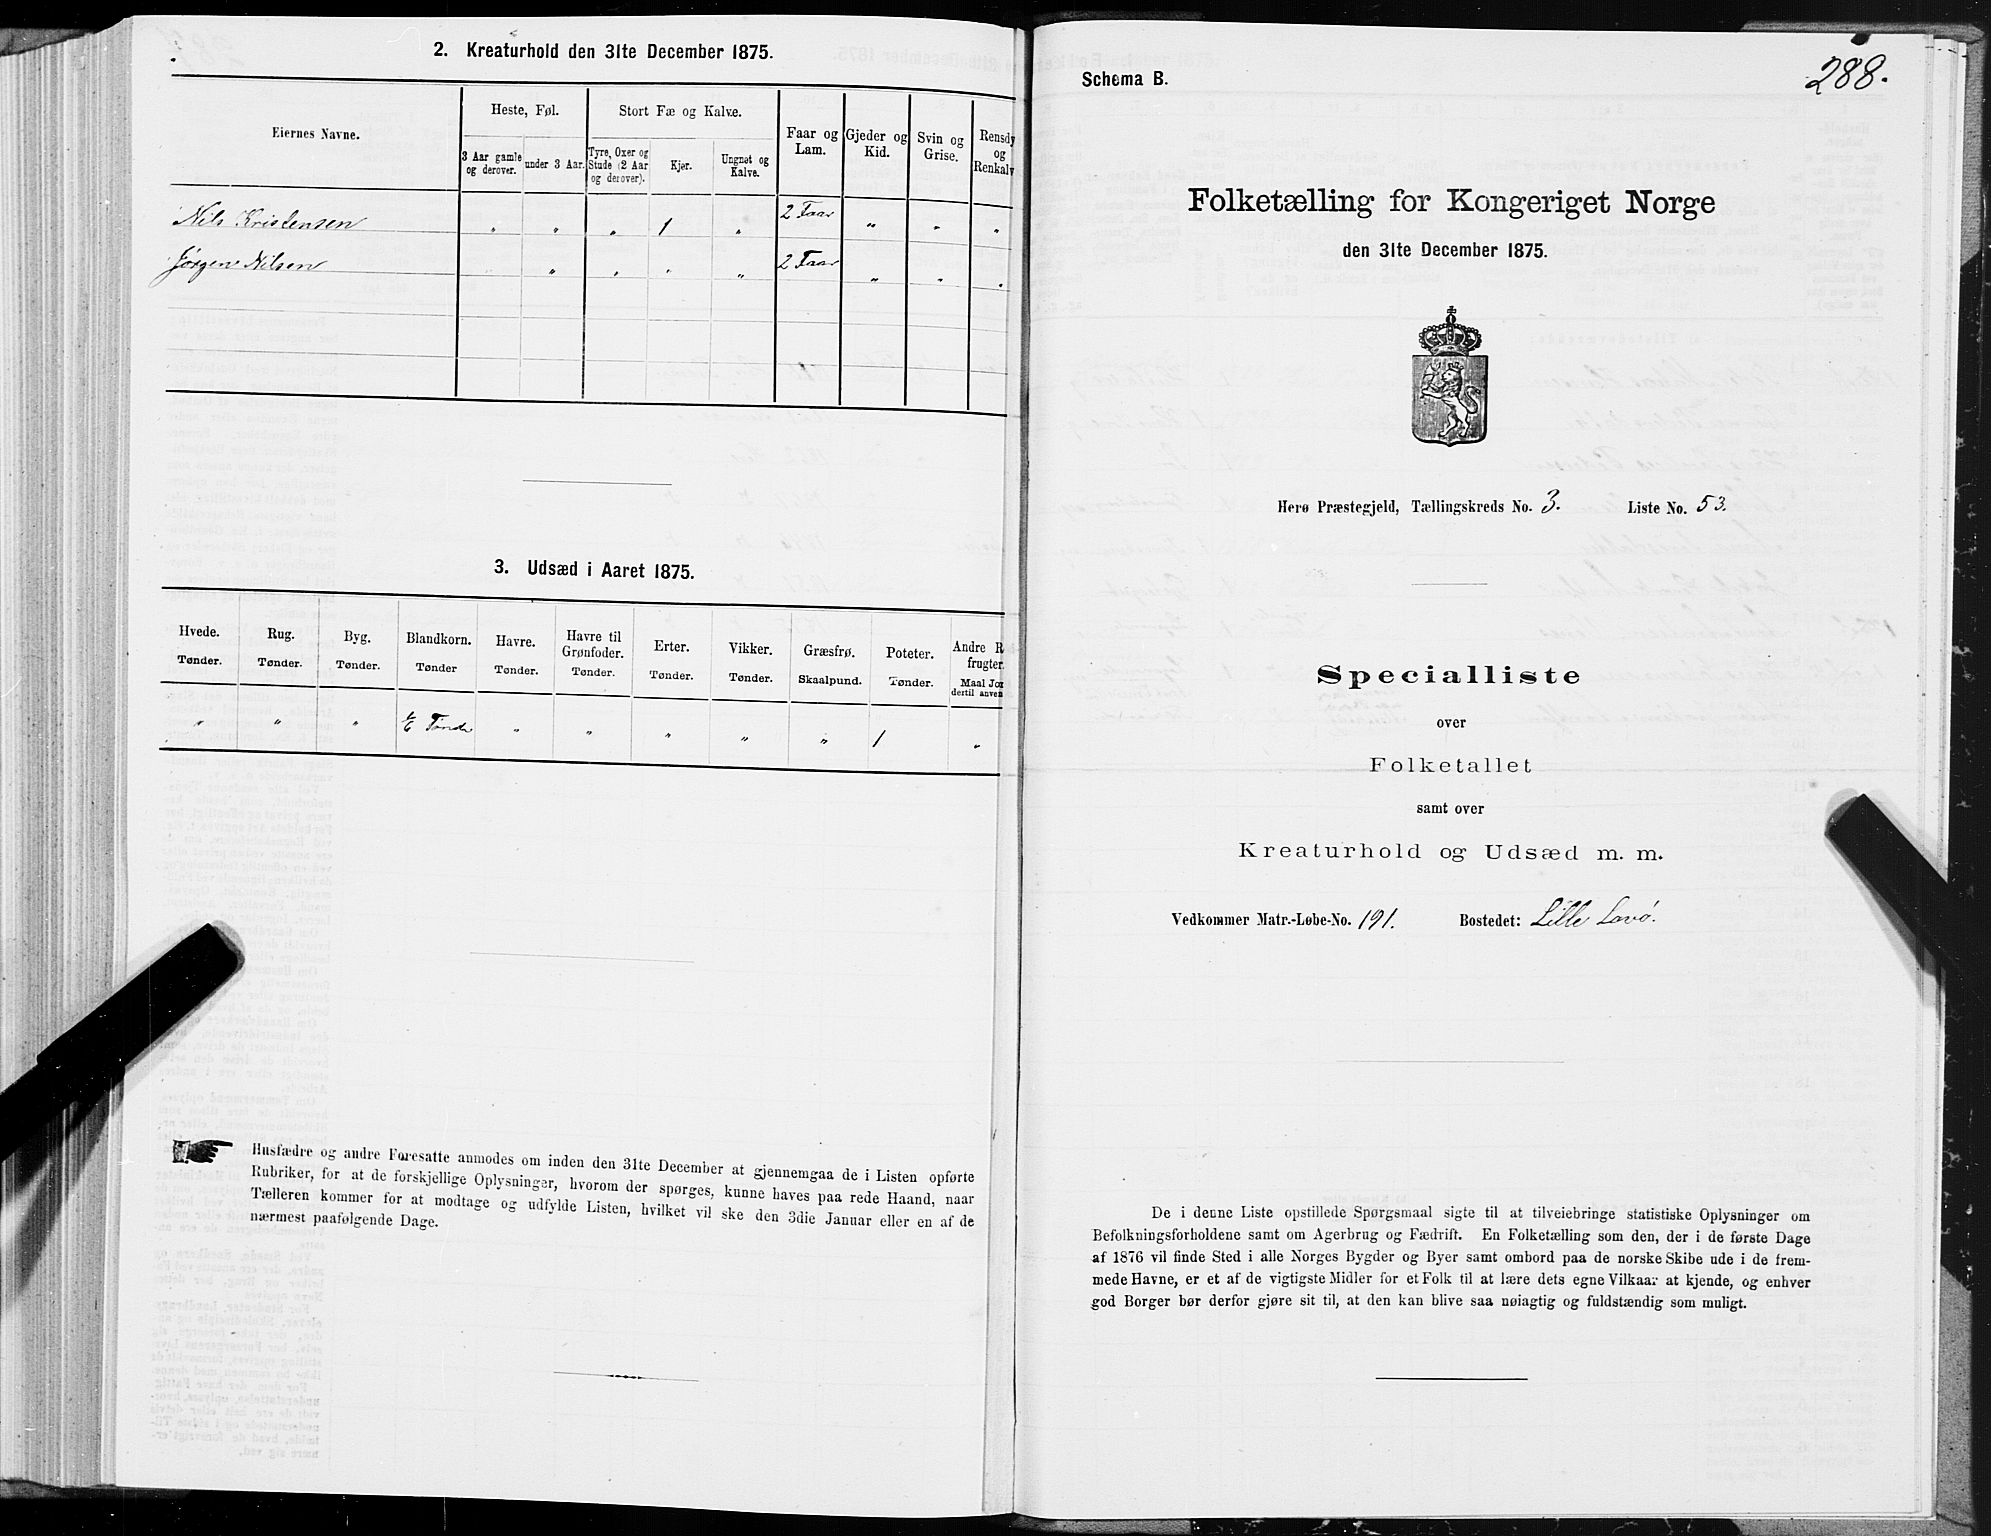 2. Kreaturhold den 31te December 1875.
Eiernes Navne.
Heste, Føl.
3 Aar gamle og derover.
under 3 Aar.
Stort Fæ og Kalve.
Tyre, Oxer og Stude (2 Aar og derover).
Kjør.
Ungnøt og Kalve.
Faar og Lam.
Gjeder og Kid.
Svin og Grise.
Rensdy og Renkalv
Nils Kristensen " " " 1 " 2 Faar " " "
Jørgen Nilsen " " " " 2 Faar " " "
3. Udsæd i Aaret 1875.
Hvede. Tønder.
Rug. Tønder.
Byg. Tønder.
Blandkorn. Tønder
Havre. Tønder.
Havre til Grønfoder. Tønder.
Erter. Tønder.
Vikker. Tønder.
Græsfrø. Skaalpund.
Poteter. Tønder.
Andre R frugter. Maal Jor dertil anven
" " " Tønde " " " " " 1 "
Husfædre og andre Foresatte anmodes om inden den 31te December at gjennemgaa de i Listen opførte
Rubriker, for at de forskjellige Oplysninger, hvorom der spørges, kunne haves paa rede Haand, naar
Tælleren kommer for at modtage og udfylde Listen, hvilket vil ske den 3die Januar eller en af de
nærmest paafølgende Dage.
Schema B.
288.
Folketælling for Kongeriget Norge
den 31te December 1875.
Herø Præstegjeld, Tællingskreds No. 3. Liste No. 53.
Specialliste
over
Folketallet
samt over
Kreaturhold og Udsæd m. m.
Vedkommer Matr.-Løbe-No. 191. Bostedet: Lille Lovø.
De i denne Liste opstillede Spørgsmaal sigte til at tilveiebringe statistiske Oplysninger om
Befolkningsforholdene samt om Agerbrug og Fædrift. En Folketælling som den, der i de første Dage
af 1876 vil finde Sted i alle Norges Bygder og Byer samt ombord paa de norske Skibe ude i de frem-
mede Havne, er et af de vigtigste Midler for et Folk til at lære dets egne Vilkaar at kjende, og enhver
god Borger bør derfor gjøre sit til, at den kan blive saa nøiagtig og fuldstændig som muligt.